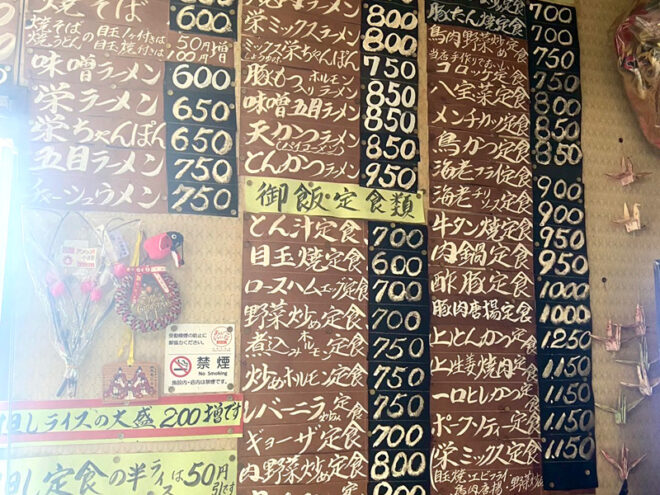 焼そば 600
焼そば
焼うどんの目玉1ヶ付きは50円増
目玉焼付は100円増
味噌ラーメン 600
栄ラーメン 650
栄ちゃんぽん 650
五目ラーメン 750
チャーシュウメン 750
受動喫煙の防止に
御協力ください。
禁煙
No Smoking
施設内・店内は禁煙です。
但しライスの大盛 200増です
但し定食の半ライスは50円引です
800
栄ミックスラーメン 800
ミックス栄ちゃんぽん 800
豚もつ ホルモン入りラーメン 750
味噌五目ラーメン 850
天かつラーメン 850
(パイコーメン)
とんかつラーメン 950
御飯・定食類
とん汁定食 700
目玉焼定食 600
ロースハムエッグ定食 700
野菜炒め定食 700
煮込みホルモン定食 750
炒めホルモン定食 750
レバーニラ炒め定食 750
ギョーザ定食 700
肉野菜炒め定食 800
豚たん焼定食 700
馬肉野菜炒め定食 750
当店手作りでおいしい
コロッケ定食 750
八宝菜定食 800
メンチカツ定食 850
鳥かつ定食 850
海老フライ定食 900
海老チリソース定食 900
牛タン焼定食 950
肉鍋定食 950
酢豚定食 1000
豚肉唐揚定食 1000
上とんかつ定食 1250
上生姜焼肉定食 1150
一口ヒレかつ定食 1150
ポークソティー定食 1150
栄ミックス定食 1150
目玉焼 エビフライ
馬肉唐揚 野菜炒